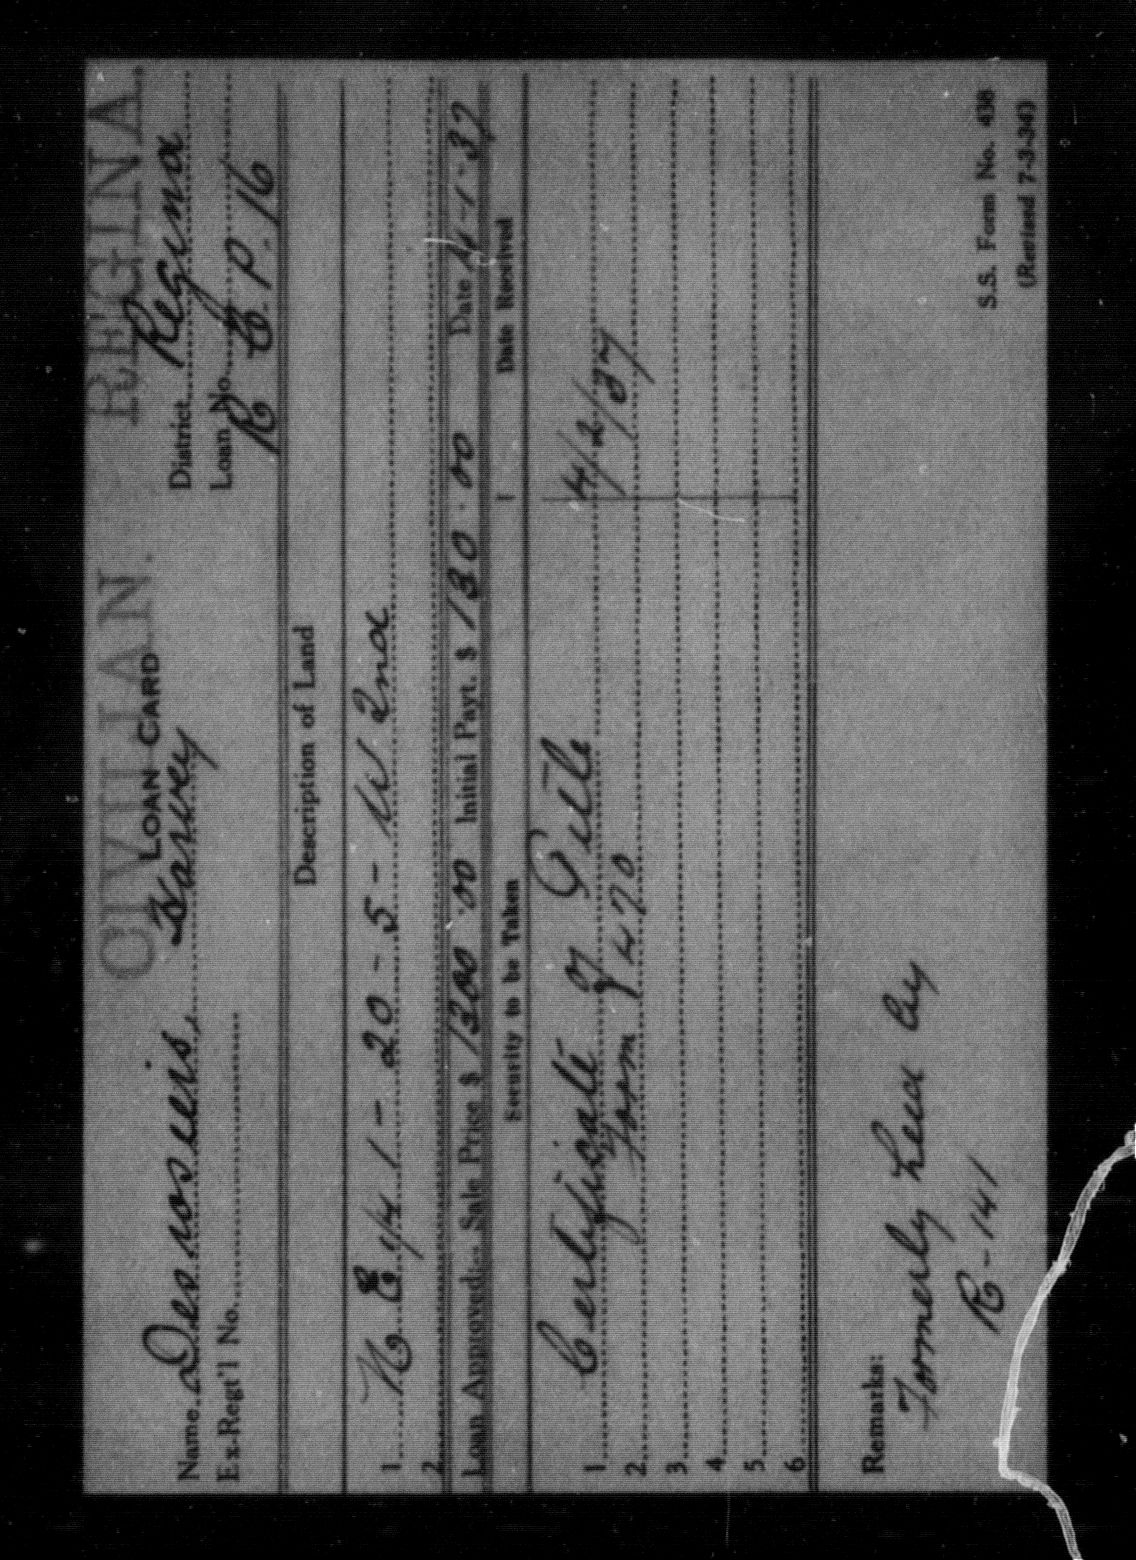 CIVILIAN. REGINA.
LOAN CARD
Name Desrosiers, Harvey District Regina
Ex-Regt'l No. Loan No. R C.P. 16
Description of Land
1. N E 1/4 1 - 20 - 5 - W 2nd
2.
Loan Approved:- Sale Price $ 1300.00 Initial Payt. $ 130.00 Date 21-1-37
Security to be Taken Date Received
1. Certificate of Title 4/2/37
2. Form 1470
3.
4.
5.
6.
Remarks:
Formerly
R-141
S.S. Form No. 438
(Revised 7-3-34)